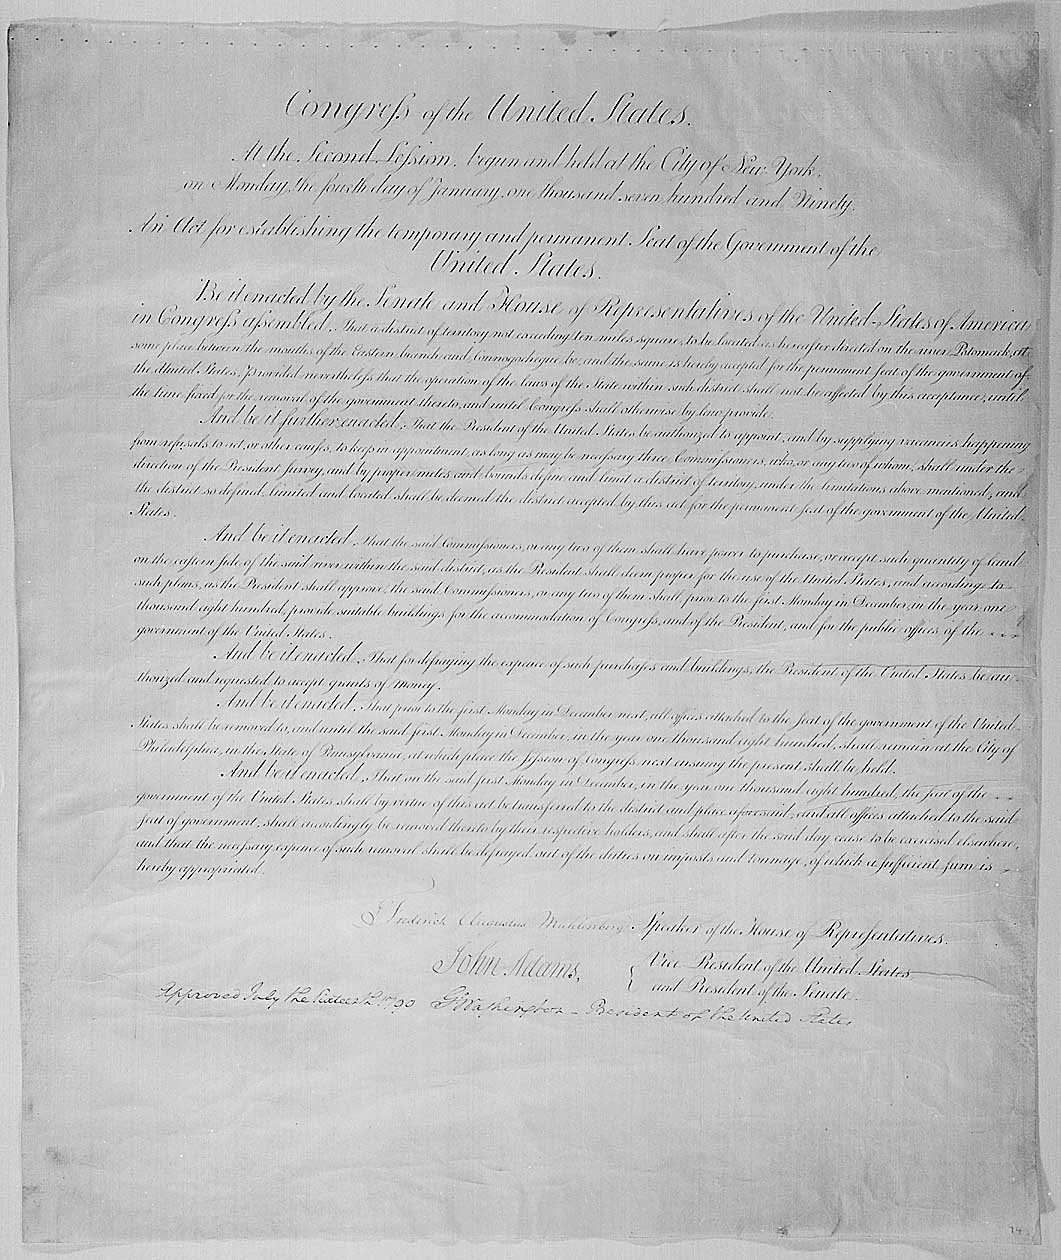 Congreſs of the United States.
At the Second Seſsion, begun and held at the City of New York,
on Monday the fourth day of January, one thousand seven hundred and Ninety.
An Act for establishing the temporary and permanent Seat of the Government of the
United States.
Be it enacted by the Senate and House of Representatives of the United States of America
in Congreſs aſsembled, That a district of territory not exceeding ten miles square, to be located as hereafter directed on the river Potomack, at
some place between the mouths of the Eastern-branch and Connogochegue be, and the same is hereby accepted for the permanent seat of the government of
the United States. Provided nevertheleſs that the operation of the laws of the State within such district shall not be affected by this acceptance, until
the time fixed for the removal of the government thereto, and until Congreſs shall otherwise by law provide.
And be it further enacted, That the President of the United States be authorized to appoint, and by supplying vacancies happening
from refusals to act or other causes, to keep in appointment, as long as may be neceſsary three Commiſsioners, who, or any two of whom, shall under the
direction of the President survey, and by proper metes and bounds define and limit a district of territory, under the limitations above mentioned, and
the district so defined, limited and located shall be deemed the district accepted by this act for the permanent seat of the government of the United
States.
And be it enacted, That the said Commiſsioners, or any two of them shall have power to purchase, or accept such quantity of land
on the eastern side of the said river within the said district, as the President shall deem proper for the use of the United States, and according to
such plans, as the President shall approve, the said Commiſsioners, or any two of them shall, prior to the first Monday in December, in the year one
thousand eight hundred, provide suitable buildings for the accommodation of Congreſs, and of the President, and for the public offices of the
government of the United States.
And be it enacted, That for defraying the expence of such purchases and buildings, the President of the United States be au-
thorized and requested to accept grants of money.
And be it enacted, That prior to the first Monday in December next, all offices attached to the seat of the government of the United
States shall be removed to, and until the said first Monday in December, in the year one thousand eight hundred, shall remain at the City of
Philadelphia, in the State of Pennsylvania, at which place the seſsion of Congreſs next ensuing the present shall be held.
And be it enacted, That on the said first Monday in December, in the year one thousand eight hundred, the seat of the
government of the United States shall by virtue of this act be transferred to the district and place aforesaid, and all offices attached to the said
seat of government, shall accordingly be removed thereto by their respective holders, and shall after the said day cease to be exercised elsewhere,
and that the neceſsary expence of such removal shall be defrayed out of the duties on imposts and tonnage, of which a sufficient sum is
hereby appropriated.
Frederick Augustus Muhlenberg Speaker of the House of Representatives.
John Adams, Vice President of the United States
and President of the Senate.
Approved July the sixteenth 1790 G Washington - President of the United States
74